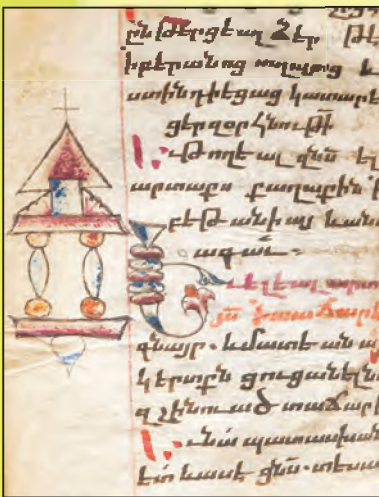 ընթերցեալ Ձեր թէ
ի բերանոց տղայոց և
ստինդիեցաց կատարե
ցեր զօրհնութի
և թողեալ զնս ել
արտաքս քաղաքին ի
բեթանիայ և անդ
ագաւ.
ելեալ արտա
յս ի տաճարէ
գնայր. և մատեան ա
կերտքն ցուցանել ն
զշինուած տաճարի
նա պատասխան
ետ և ասէ ցնս. տեսա